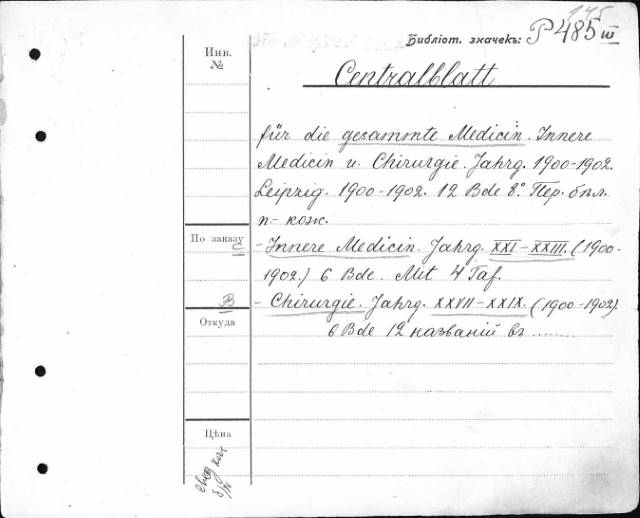 145
Библіот. значекъ: P 485 III
Инв. №
Centralblatt
für die gesammte Medicin. Innere
Medicin u. Chirurgie. Jahrg. 1900-1902.
Leipzig. 1900-1902. 12 Bde 8.° Пер. бпл.
п-кож.
По заказу
C
- Innere Medicin. Jahrg. XXI-XXIII. (1900-
1902.) 6 Bde. Mit 4 Taf.
B
- Chirurgie. Jahrg. XXVII-XXIX. (1900-1902).
Откуда
6 Bde 12 названій въ ........
Цѣна